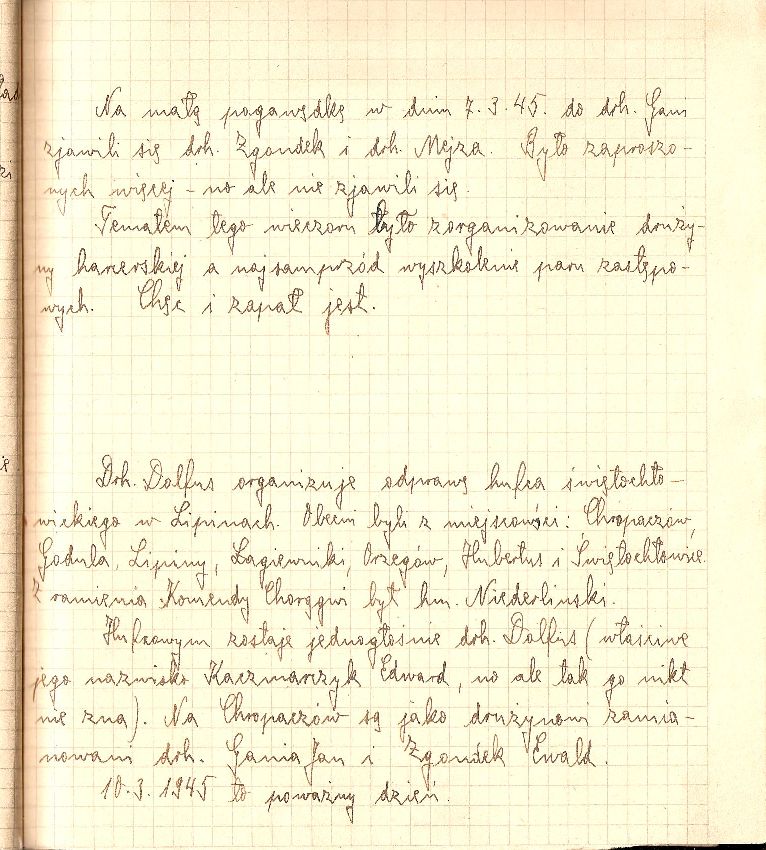 Na małą pogawędkę w dniu 7.3.45. do drh. Gani
zjawili się drh. Zgondek i drh. Mejza. Było zaproszo-
nych więcej - no ale nie zjawili się.
Tematem tego wieczoru było zorganizowanie druży-
ny harcerskiej a najsamprzód wyszkolenie paru zastępo-
wych. Chęc i zapał jest.
Drh. Dolfus organizuje odprawę hufca świętochło-
wickiego w Lipinach. Obecni byli z miejscowości: Chropaczów,
Godula, Lipiny, Łagiewniki, Orzegów, Hubertus i Świętochłowice.
Z ramienia Komendy Chorągwi był hm. Niederlinski.
Hufcowym zostaje jednogłośnie drh. Dolfus (właściwe
jego nazwisko Kaczmarczyk Edward, no ale tak go nikt
nie zna). Na Chropaczów są jako drużynowi zamia-
nowani drh. Gania Jan i Zgondek Ewald.
10.3.1945 to poważny dzień.